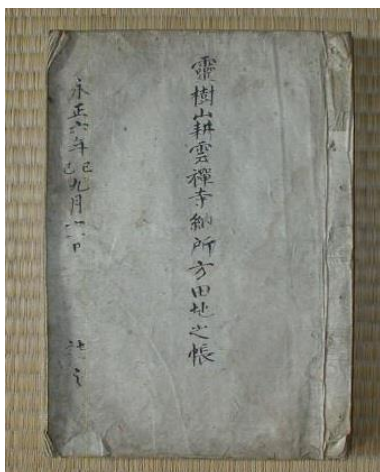 靈樹山耕雲禪寺納所方田地之帳
永正六年己巳九月 日 之